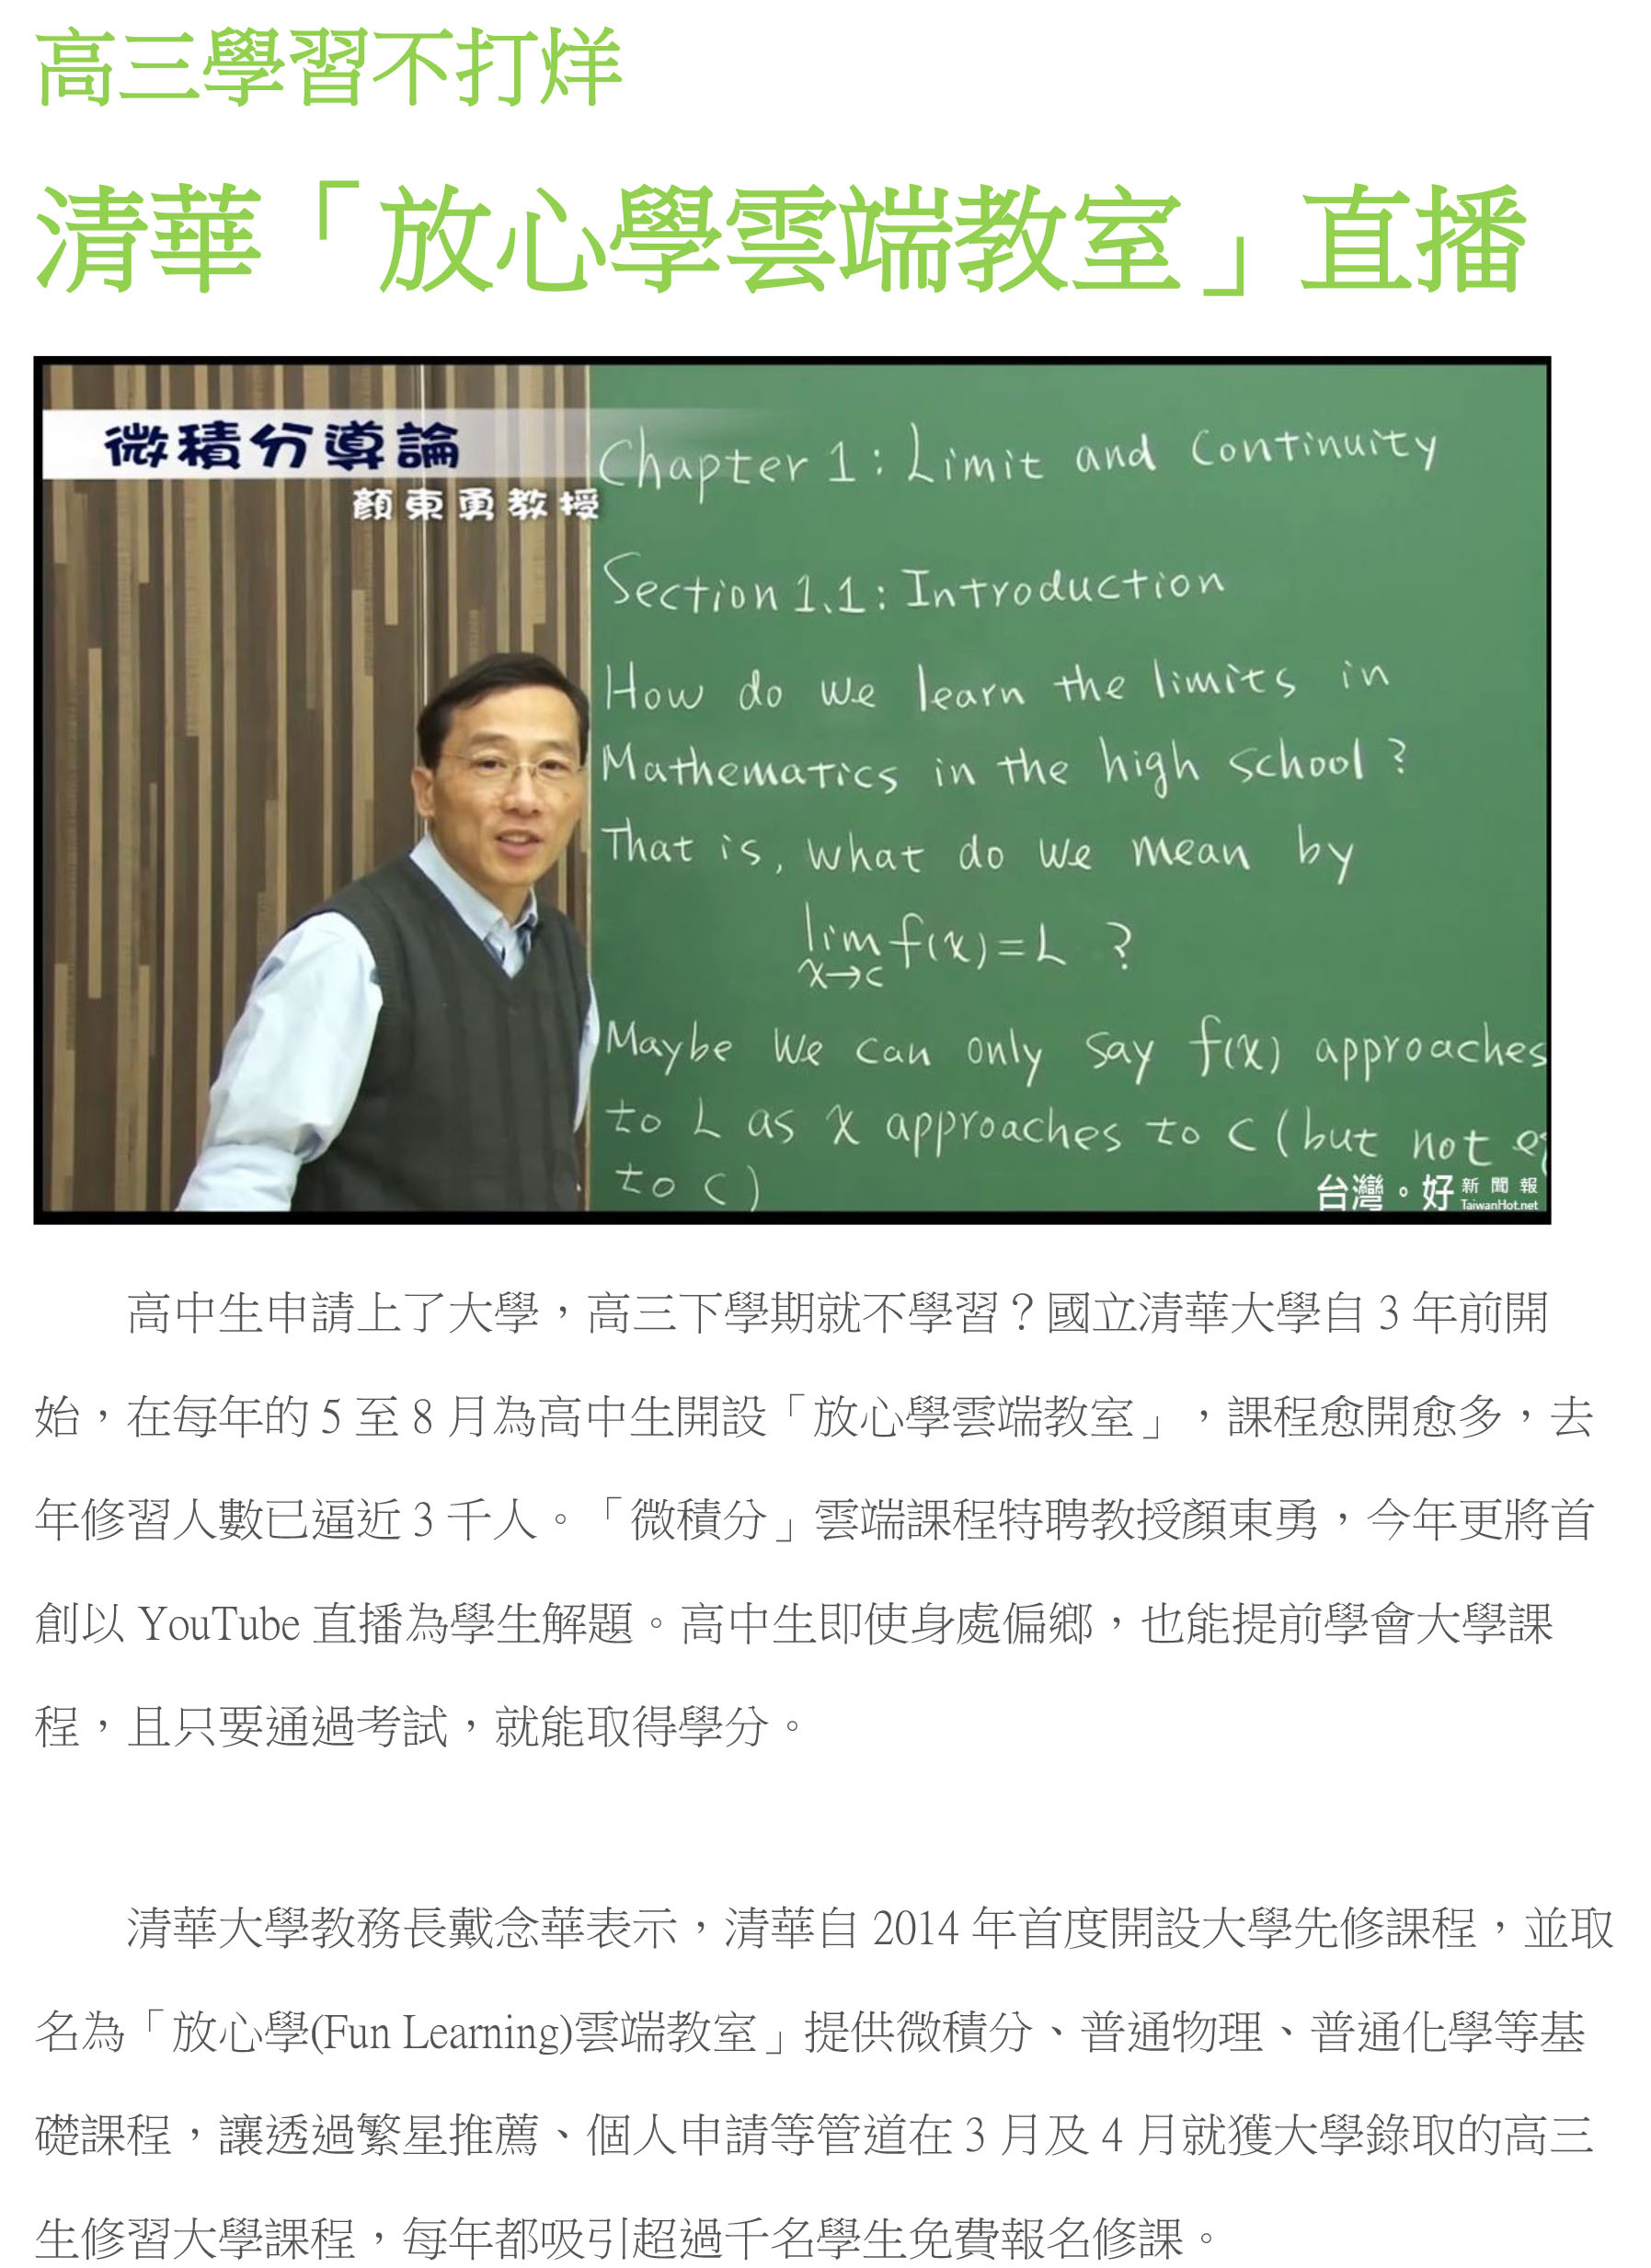 高三學習不打烊
清華「放心學雲端教室」直播
微積分導論
顏東勇教授
Chapter 1: Limit and Continuity
Section 1.1: Introduction
How do we learn the limits in
Mathematics in the high school?
That is, what do we mean by
lim f(x)=L ?
x→c
Maybe we can only say f(x) approaches
to L as x approaches to c (but not
to c)
台灣。好 新聞報
TaiwanHot.net
高中生申請上了大學，高三下學期就不學習？國立清華大學自 3 年前開
始，在每年的 5 至 8 月為高中生開設「放心學雲端教室」，課程愈開愈多，去
年修習人數已逼近 3 千人。「微積分」雲端課程特聘教授顏東勇，今年更將首
創以 YouTube 直播為學生解題。高中生即使身處偏鄉，也能提前學會大學課
程，且只要通過考試，就能取得學分。
清華大學教務長戴念華表示，清華自 2014 年首度開設大學先修課程，並取
名為「放心學(Fun Learning)雲端教室」提供微積分、普通物理、普通化學等基
礎課程，讓透過繁星推薦、個人申請等管道在 3 月及 4 月就獲大學錄取的高三
生修習大學課程，每年都吸引超過千名學生免費報名修課。